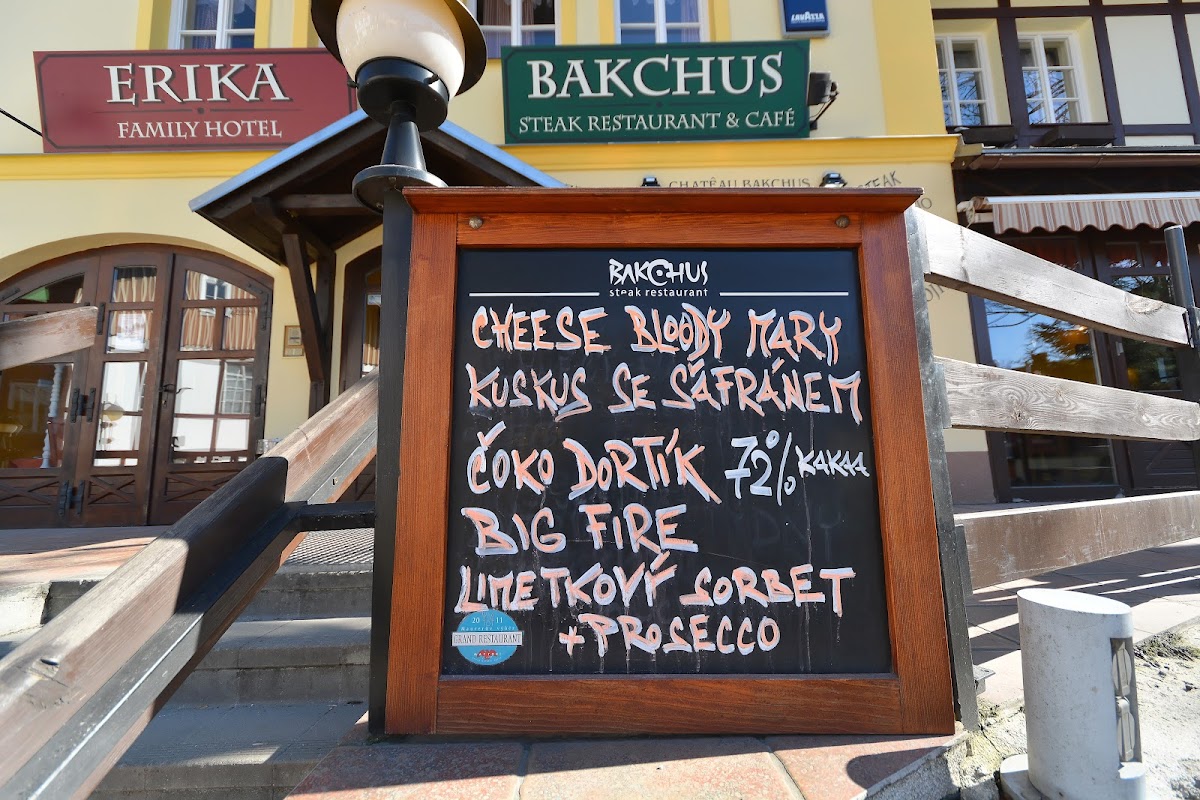 LAVAZZA
ERIKA
FAMILY HOTEL
BAKCHUS
STEAK RESTAURANT & CAFÉ
CHATÊAU BAKCHUS
STEAK
BAKCHUS
steak restaurant
CHEESE BLOODY MARY
KUSKUS SE SÁFRÁNEM
ČOKO DORTÍK 72% KAKAA
BIG FIRE
LIMETKOVÝ SORBET
+ PROSECCO
20 11
GRAND RESTAURANT